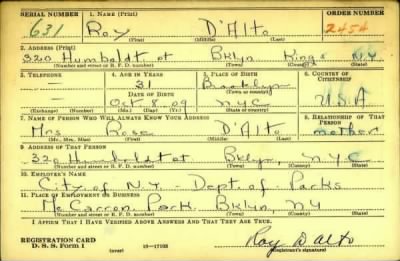 SERIAL NUMBER 1. NAME (Print) ORDER NUMBER
631 Roy D'Alto 2454
(First) (Middle) (Last)
2. ADDRESS (Print)
320 Humboldt st Bklyn Kings N.Y.
(Number and street or R. F. D. number) (Town) (County) (State)
3. TELEPHONE 4. AGE IN YEARS 5. PLACE OF BIRTH 6. COUNTRY OF CITIZENSHIP
31 Brooklyn
DATE OF BIRTH (Town or county)
Oct 8 09 NYC U.S.A
(Exchange) (Number) (Mo.) (Day) (Yr.) (State or country)
7. NAME OF PERSON WHO WILL ALWAYS KNOW YOUR ADDRESS 8. RELATIONSHIP OF THAT PERSON
Mrs Rose D'Alto mother
(Mr., Mrs., Miss) (First) (Middle) (Last)
9. ADDRESS OF THAT PERSON
320 Humboldt st Bklyn NYC
(Number and street or R. F. D. number) (Town) (County) (State)
10. EMPLOYER'S NAME
City of N.Y. - Dept. of Parks
11. PLACE OF EMPLOYMENT OR BUSINESS
Mc Carron Park Bklyn, NY
(Number and street or R. F. D. number) (Town) (County) (State)
I AFFIRM THAT I HAVE VERIFIED ABOVE ANSWERS AND THAT THEY ARE TRUE.
REGISTRATION CARD
D. S. S. Form 1 (over) 16—17105 Roy D'alto
(Registrant's signature)